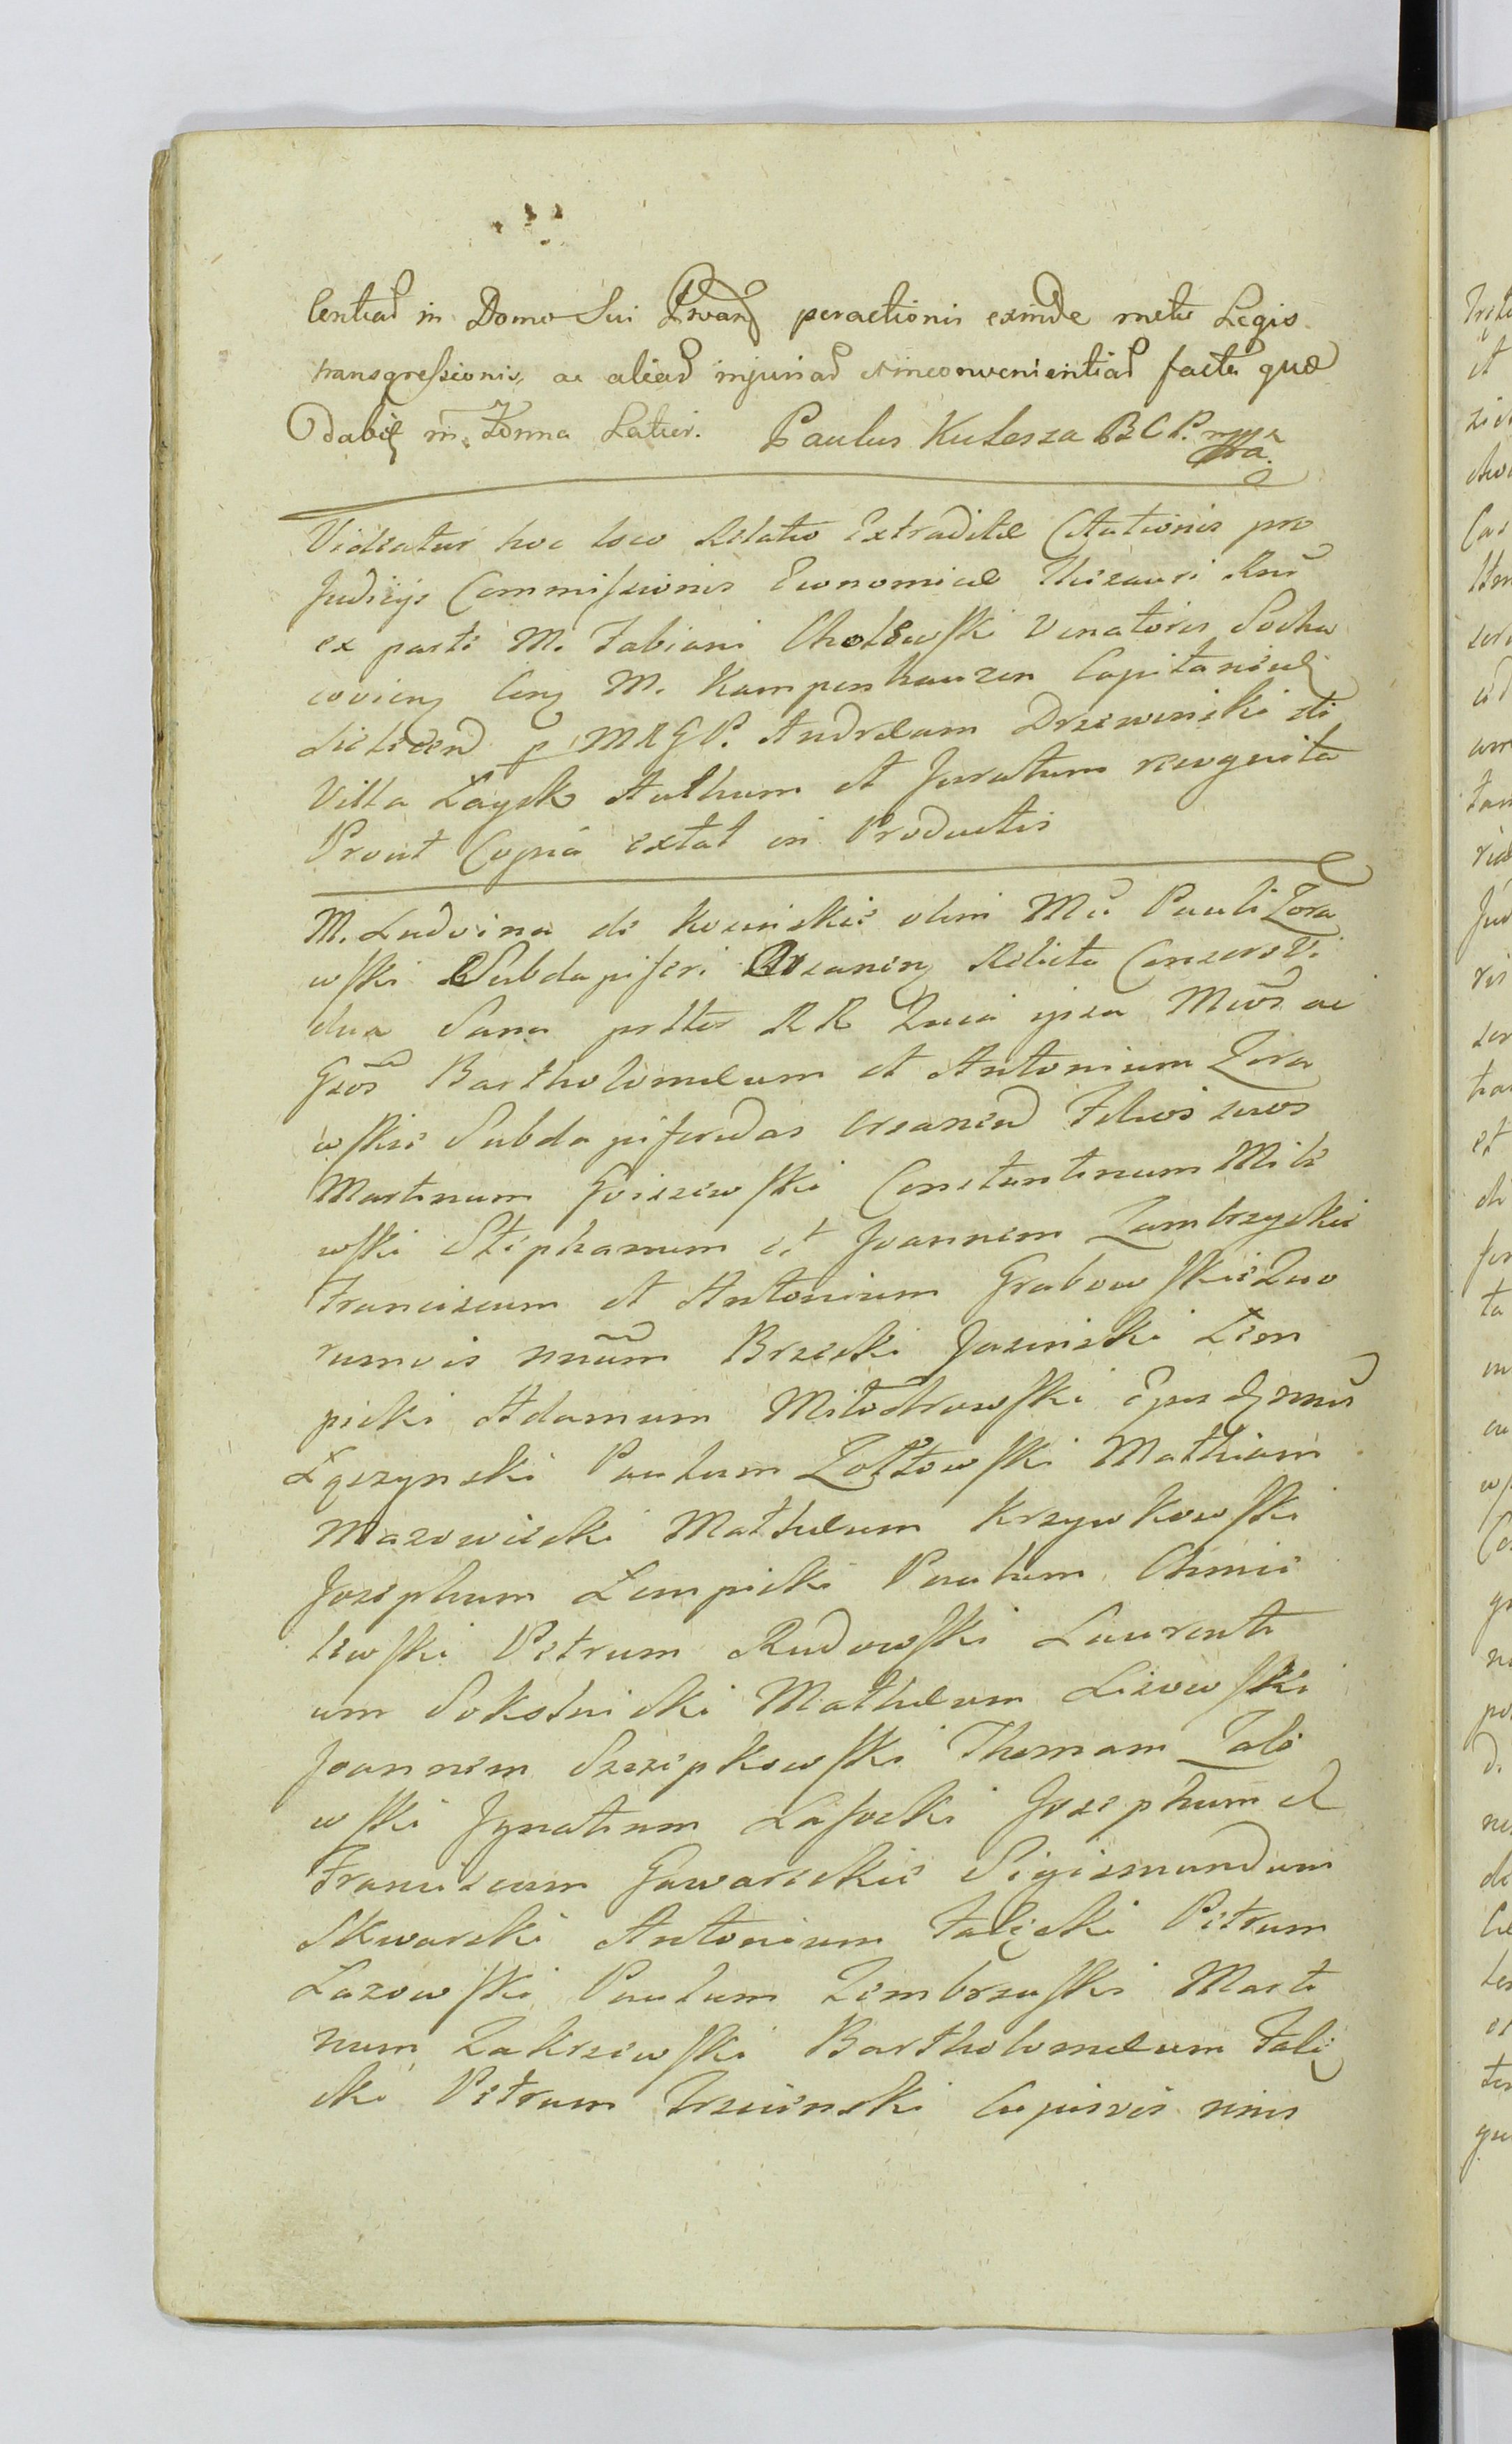 lentias in Domo Sui peractionis exinde metu Legis
transgressionis, ac alias injurias et inconvenientias facta quæ
dabit in Forma Latiori. Paulus Kulesza B C P. mpr
Videatur hoc loco Relatio Extraditæ Citationis pro
Judicijs Commissionis Economicæ Thesauri Rni
ex parte M. Fabiani Cholewski Venatoris Socha
coviens cens M. Kampenhauzen Capitaneum
p MRGP. Andræam Drzewinski de
Villa Łaysk Authum et Juratum recognita
Prout Copia extat in Productis
M. Ludvina de Kosinskie olim Mci Pauli Zora
wski Subdapiferi Rozanens Relicta Consors Vi
dua Sana prttur RR Quia ipsa Mcos ac
Gsos Bartholomæum et Antonium Zora
wskie Subdapiferidas Filios suos
Martinum Goiszewski Constantinum Mile
wski Stephanum et Joannem Zambrzyckie
Franciscum et Antonium Grabowskie Quo
rumvis nnum Brzeski Jasinski Łem
picki Adamum Miłodrowski
Łęczynski Paulum Zołtowski Mathiam
Mazowiecki Mathæum Krzywkowski
Josephum Lempicki Paulum Chmie
lewski Petrum Rudowski Laurenti
um Sokolnicki Mathæum Lisowski
Joannem Szczepkowski Thomam Zale
wski Jgnatium Lasocki Josephum et
Franciscum Gawareckie Sigismundum
Skwarski Antonium Falęcki Petrum
Lazowski Paulum Zembrzuski Marti
num Zakrzewski Bartholomæum Falę
cki Petrum Trzcinski Cujusvis nnis